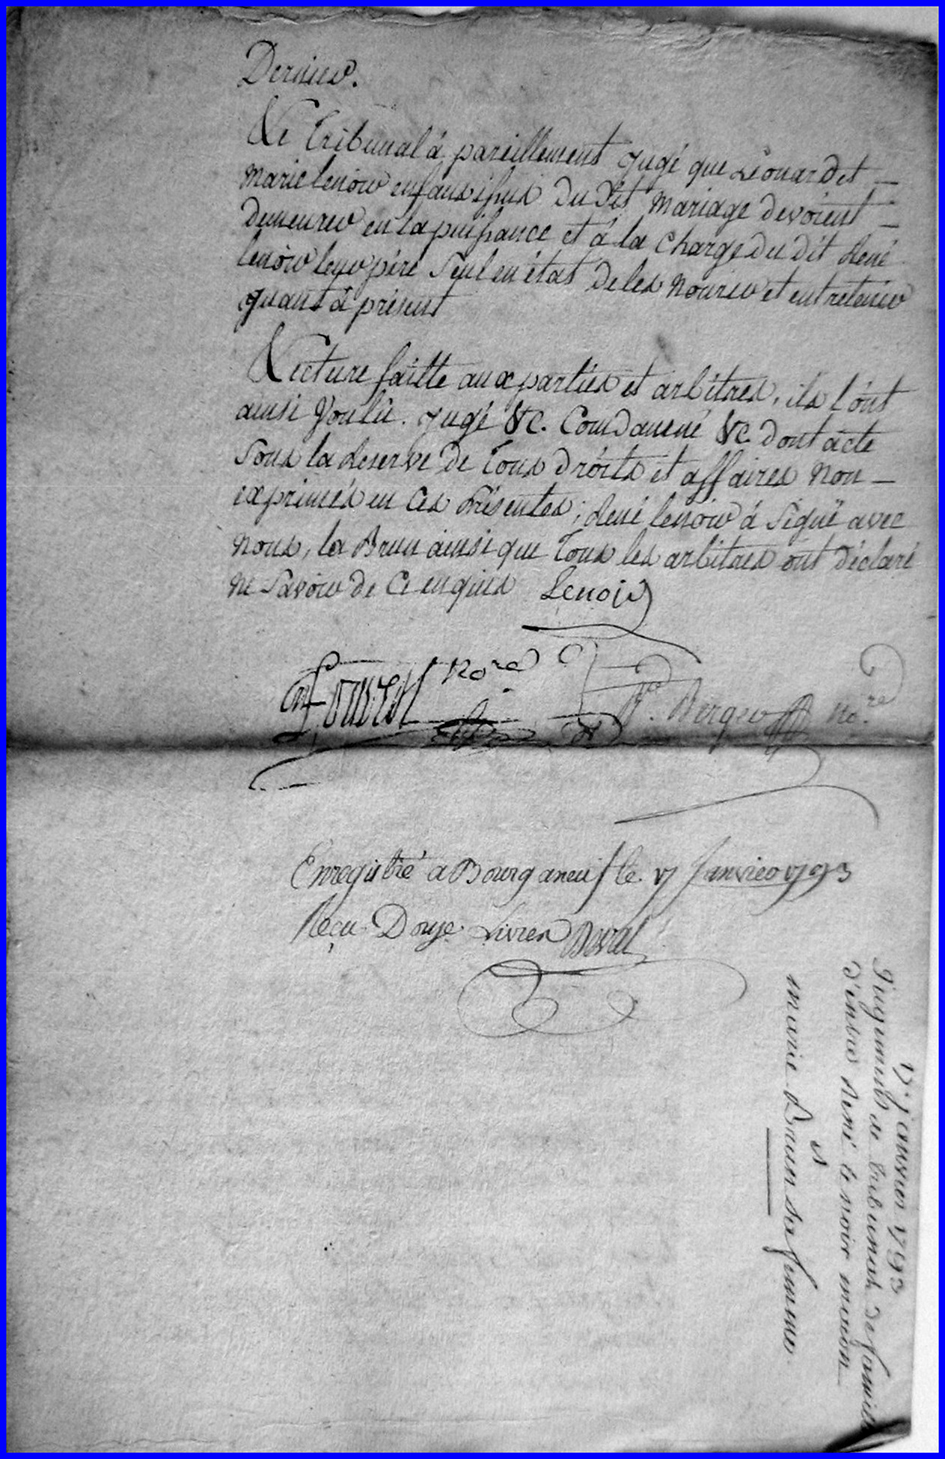 Dernier.
Le Tribunal à pareillement jugé que Léonard et
Marie lenoir enfans issus du dit mariage devoient
demeurer en la puissance et à la charge du dit René
lenoir leur père seul en état de les nourir et entretenir
quant à présent
Lecture faitte aux parties et arbitres, ils l'ont
ainsi voulû. jugé &c. Condamné &c. dont acte
sous la Réserve de tous droits et affaires non
exprimés en ces présentes; René lenoir à signé avec
nous, la Brun ainsi que tous les arbitres ont déclaré
ne savoir de ce enquis Lenoir
nore Berger nore
Enregistré a Bourganeuf le 17 Janvier 1793
Reçu Douze Livres
17 janvier 1793
Jugement de tribunal de famille
d'entre René lenoir maçon
&
marie Brun sa femme.